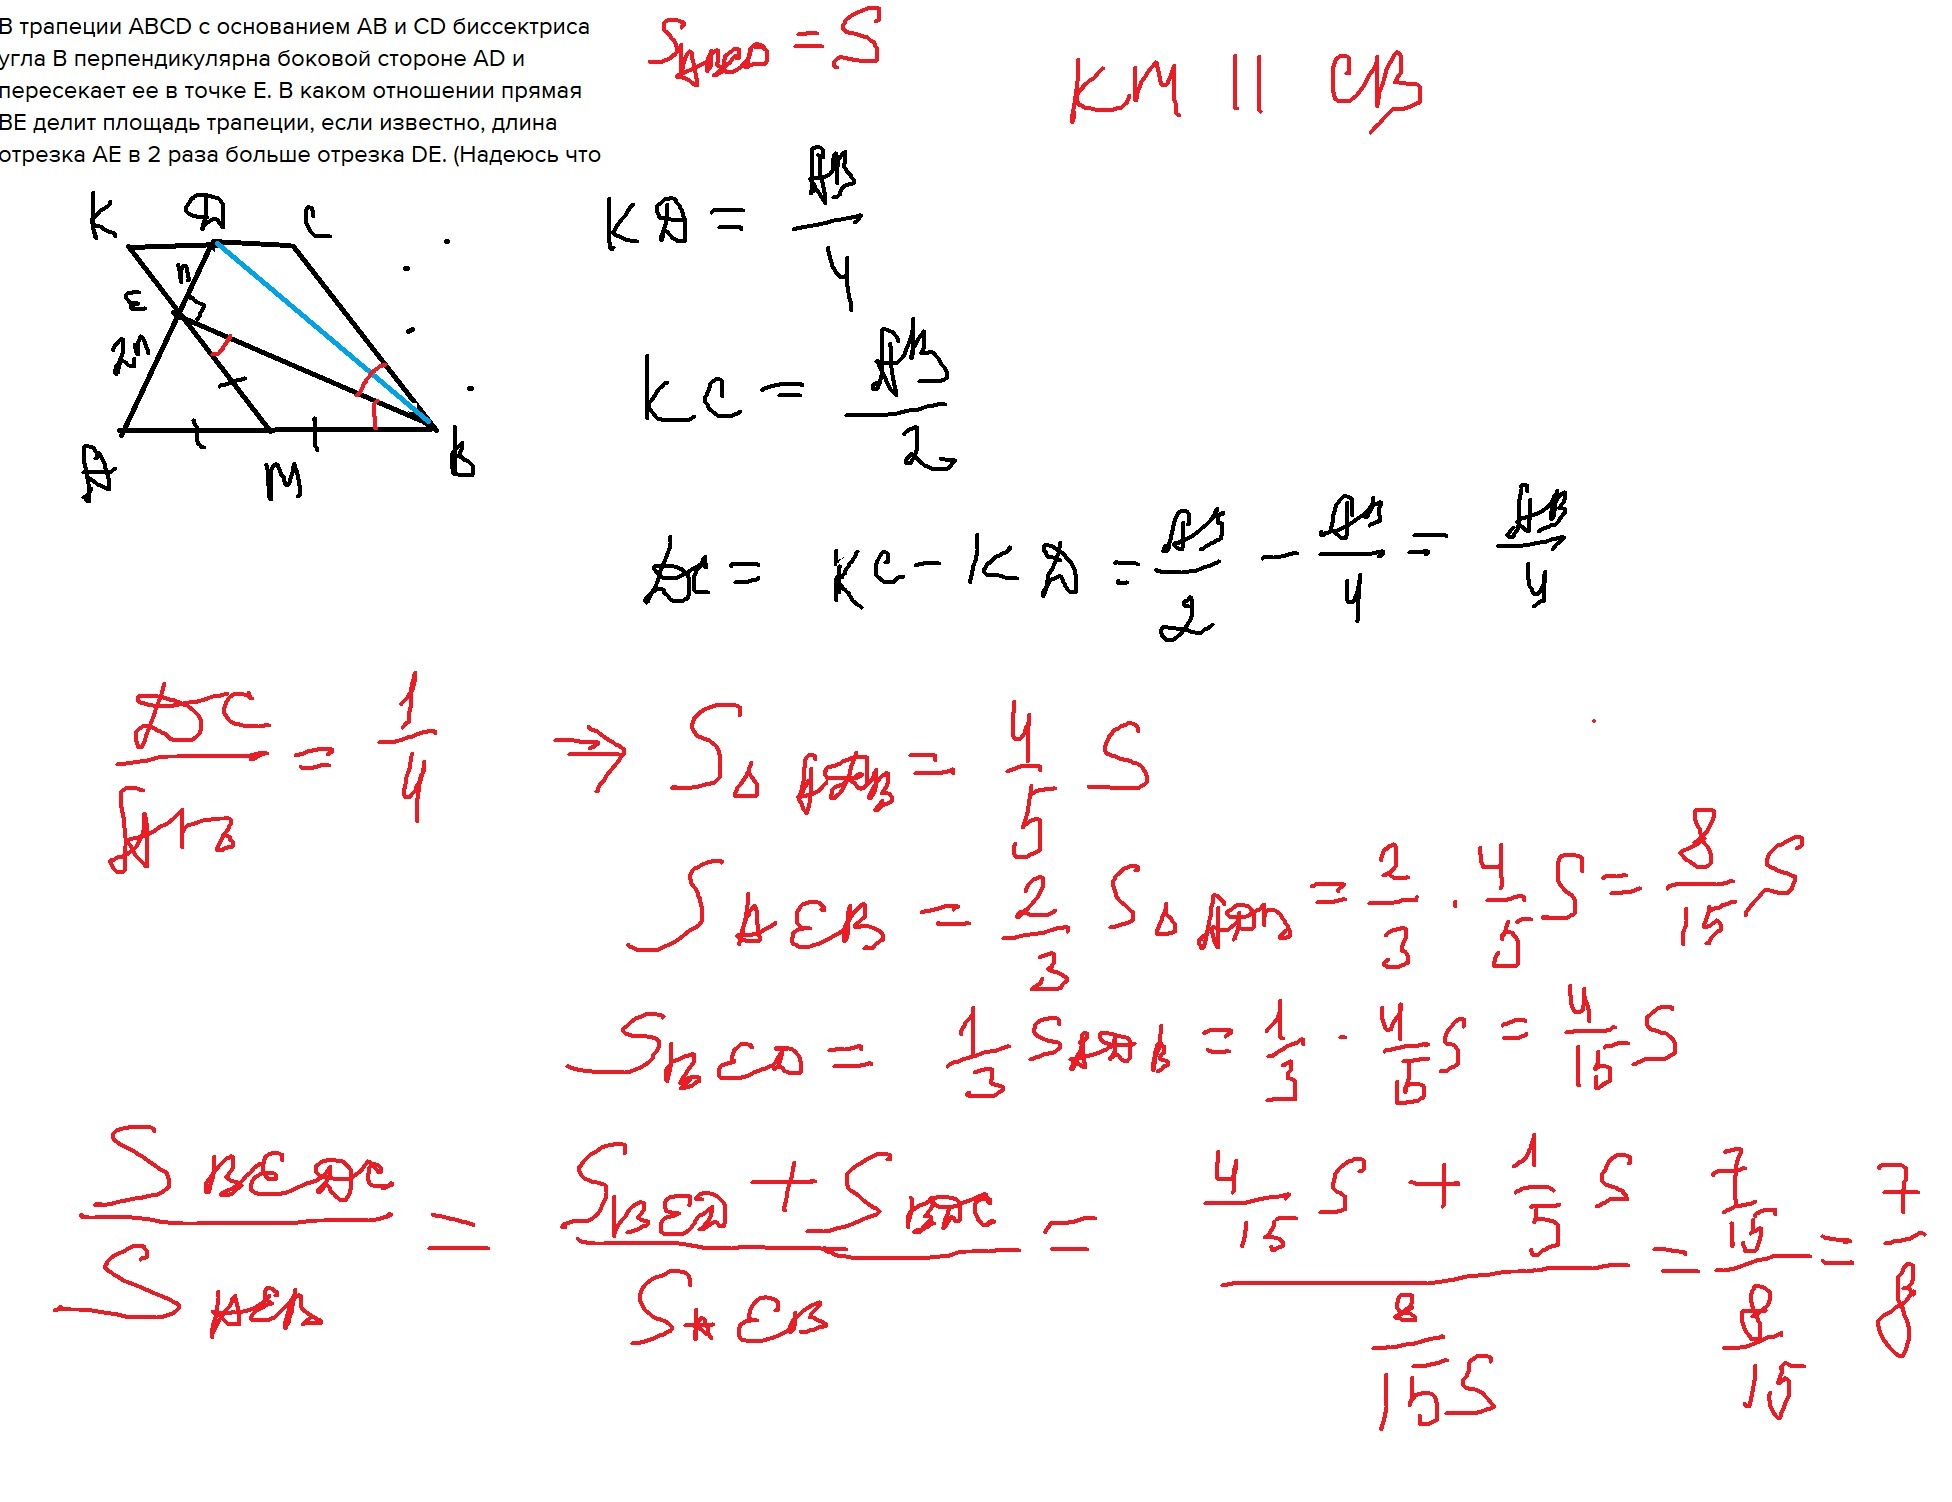 В трапеции ABCD с основанием AB и CD биссектриса
угла B перпендикулярна боковой стороне AD и
пересекает ее в точке E. В каком отношении прямая
BE делит площадь трапеции, если известно, длина
отрезка AE в 2 раза больше отрезка DE. (Надеюсь что
S_ABCD = S
KM || CB
K D C
n
E
2n
A M B
KD = AB/4
KC = AB/2
DC = KC - KD = AB/2 - AB/4 = AB/4
DC/AB = 1/4 → S_Δ ADB = 4/5 S
S_AEB = 2/3 S_Δ ADB = 2/3 · 4/5 S = 8/15 S
S_BED = 1/3 S_ADB = 1/3 · 4/5 S = 4/15 S
S_BEDC/S_AEB = (S_BED + S_BDC)/S_AEB = (4/15 S + 1/5 S)/(8/15 S) = (7/15)/(8/15) = 7/8